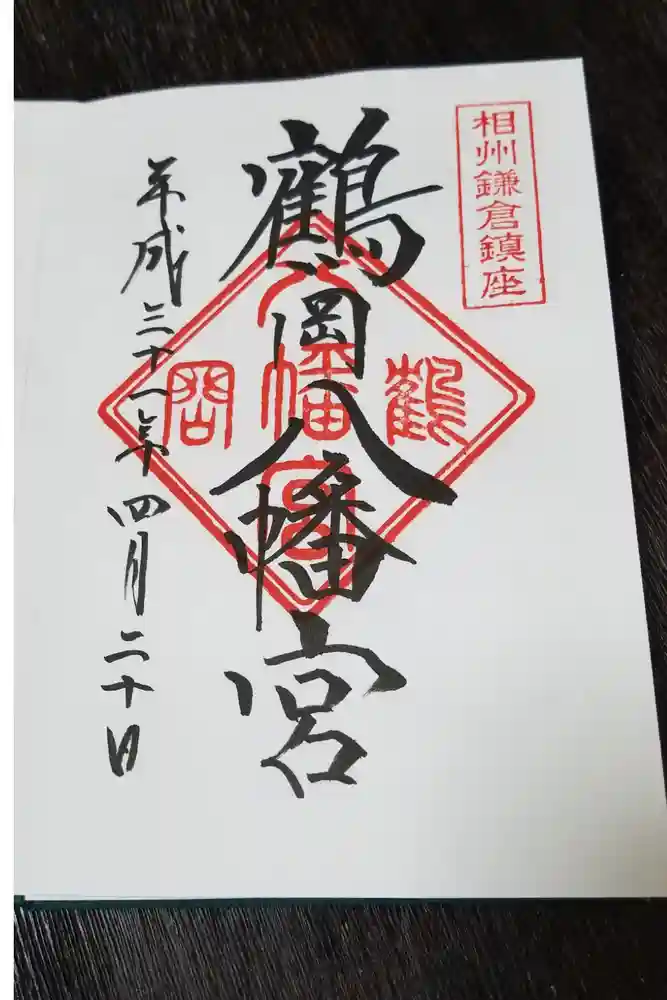 相州鎌倉鎮座
鶴岡八幡宮
平成三十一年四月二十日
鶴
八幡宮
岡